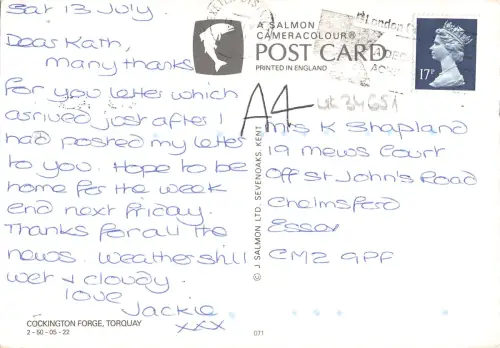 Sat 13 July.
Dear Kath,
many thanks
for you letter which
arrived just after I
had posted my letter
to you. Hope to be
home for the week
end next friday.
Thanks for all the
news. Weather still
wet & cloudy.
love
Jackie
xxx
COCKINGTON FORGE, TORQUAY
2 - 50 - 05 - 22
A SALMON
CAMERACOLOUR®
POST CARD
PRINTED IN ENGLAND
© J. SALMON LTD. SEVENOAKS, KENT
071
London
17P
A4
UK34651
Mrs K Shapland
19 mews Court
Off St John's Road
Chelmsford
Essex
CM2 9PF